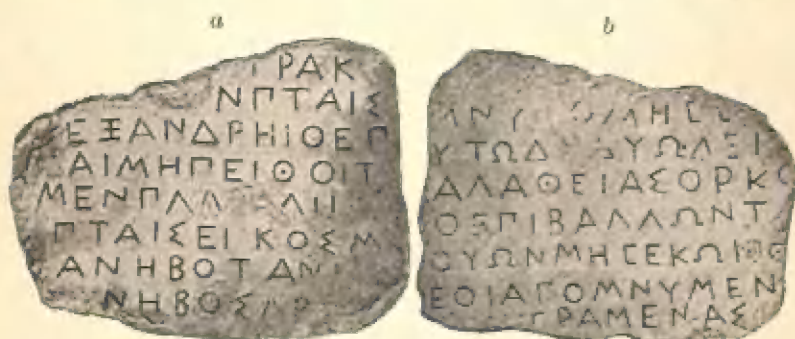 a
ΡΑΚ
ΝΠΤΑΙΣ
ΕΞΑΝΔΡΗΙΟΕΠ
ΑΙΜΗΠΕΙΘΟΙΤ
ΜΕΝΠΛ
ΠΤΑΙΣΕΙΚΟΣΜ
ΑΝΗΒΟΤ
ΝΗΒΟΣ
b
ΑΝΥ
ΥΤΩΔ ΥΩΛΕΙ
ΑΛΑΘΕΙΑΣΟΡΚΟ
ΟΕΠΙΒΑΛΛΩΝΤ
ΟΥΩΝΜΗΣΕΚΩΙ
ΕΟΙΑΠΟΜΝΥΜΕΝ
ΓΡΑΜΕΝΑΣ